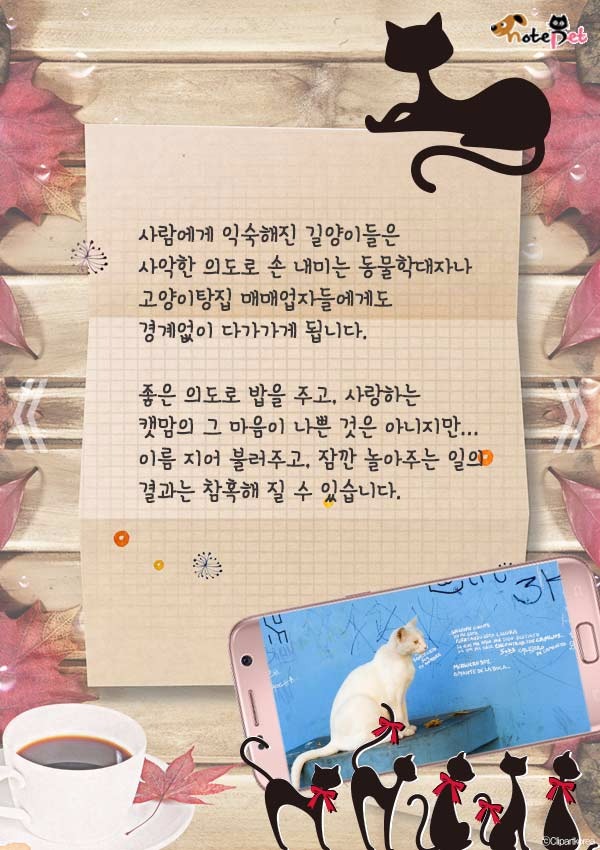 notepet
사람에게 익숙해진 길양이들은
사악한 의도로 손 내미는 동물학대자나
고양이탕집 매매업자들에게도
경계없이 다가가게 됩니다.
좋은 의도로 밥을 주고, 사랑하는
캣맘의 그 마음이 나쁜 것은 아니지만...
이름 지어 불러주고, 잠깐 놀아주는 일의
결과는 참혹해 질 수 있습니다.
3K
©Clipartkorea